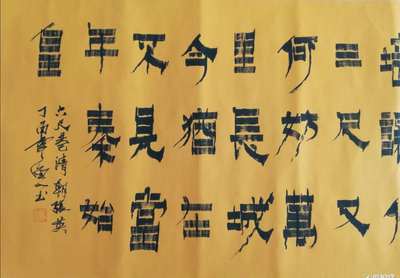 三尺又
何妨萬
里長城
今猶在
不見當
年秦始
皇
六尺巷清朝張英
丁酉